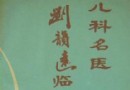 儿科名医
刘韵远临